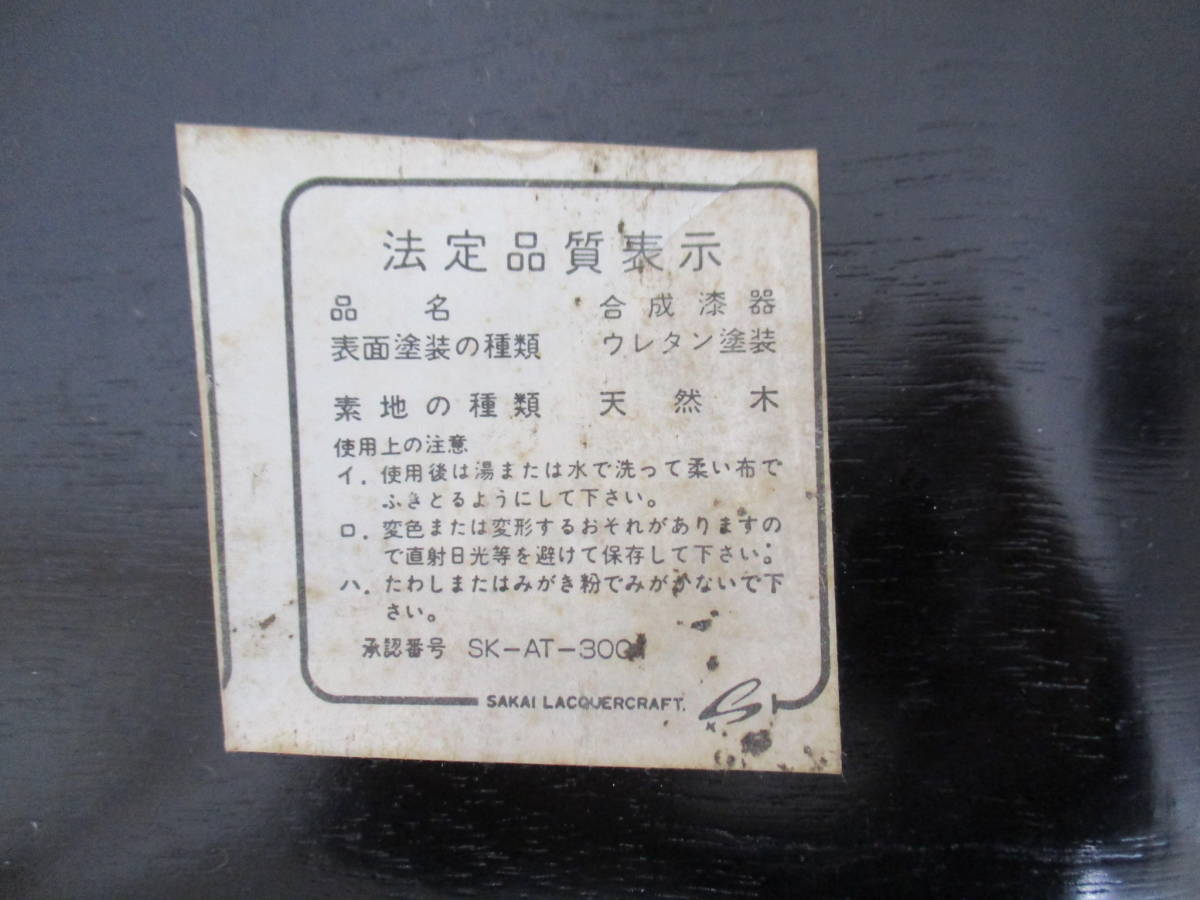 法定品質表示
品名 合成漆器
表面塗装の種類 ウレタン塗装
素地の種類 天然木
使用上の注意
イ.使用後は湯または水で洗って柔い布で
ふきとるようにして下さい。
ロ.変色または変形するおそれがありますの
で直射日光等を避けて保存して下さい。
ハ.たわしまたはみがき粉でみがかないで下
さい。
承認番号
SAKAI LACQUERCRAFT.